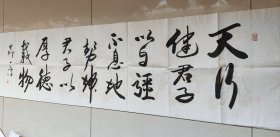 天行
健君子
以自彊
不息地
勢坤
君子以
厚德
載物